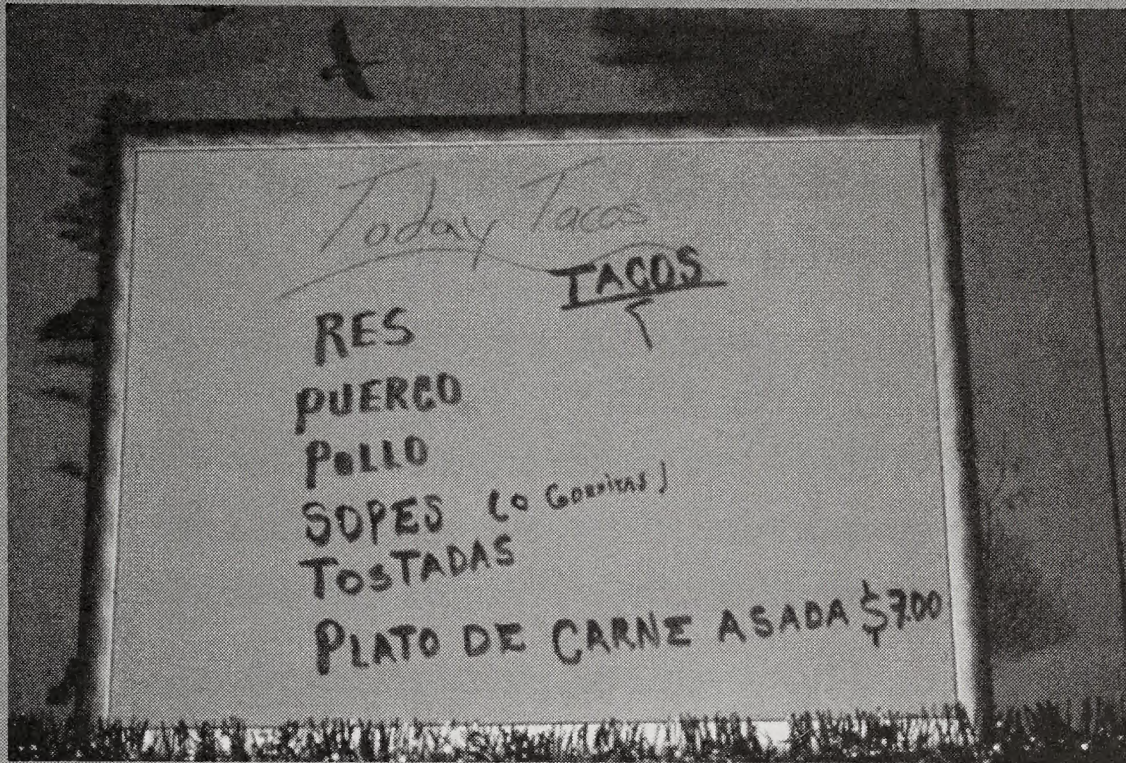 Today Tacos
TACOS
RES
PUERCO
POLLO
SOPES (O GORDITAS)
TOSTADAS
PLATO DE CARNE ASADA $7.00